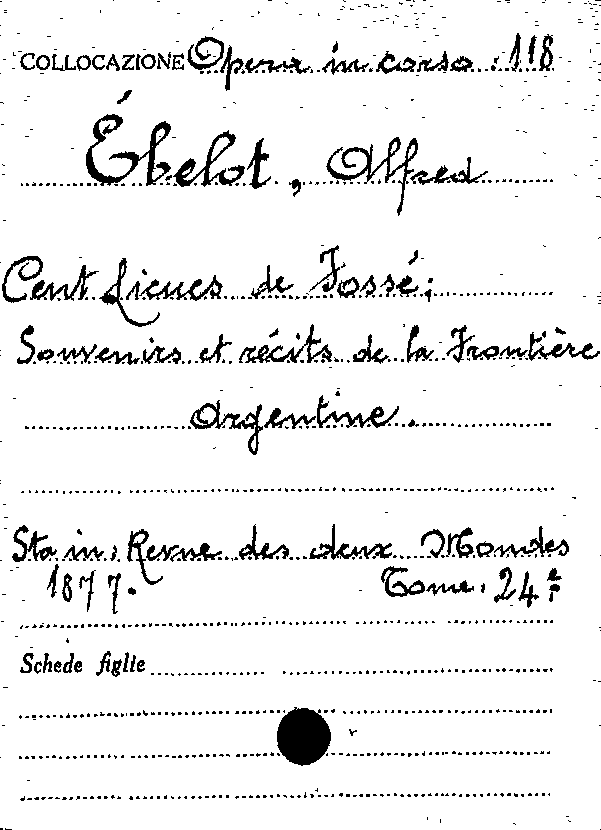 COLLOCAZIONE Opera in corso. 118
Ébelot, Alfred
Cent Lieues de Fossé;
Souvenirs et récits de la Frontière
Argentine.
Sta in: Revue des deux Mondes
1877. Tome. 24e
Schede figlie